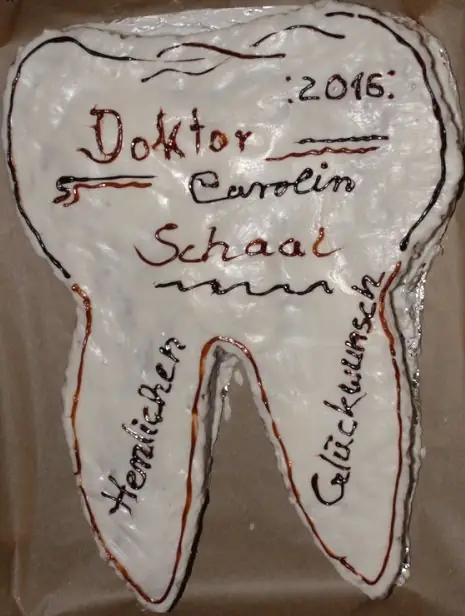 :2016:
Doktor
Carolin
Schaal
Herzlichen
Glückwunsch